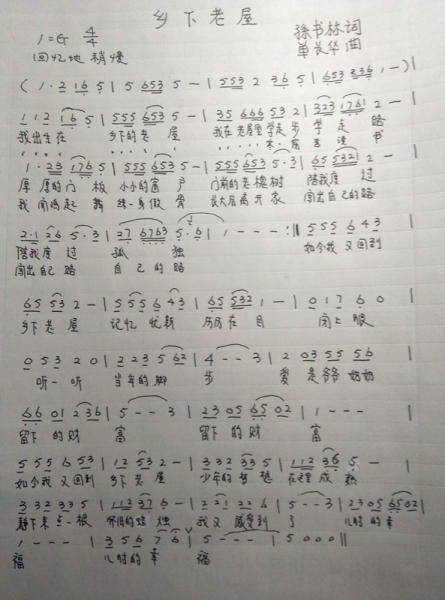 乡下老屋
1=G 4/4
孙书林词
单长华曲
回忆地 稍慢
( 1·2 1 6 5 | 5 6 5 3 5 - | 5 5 3 2 3 6 5 | 6 5 3 3 3 6 1 - ) |
1 1 2 1 6 5 | 5 5 5 6 5 3 5 - | 3 5 6 6 6 5 3 2 | 3 2 3 1 7 6 1 2 - |
我出生在 乡下的老屋 我在老屋里学走步 学走路
1·2 3 1 7 6 5 | 5 5 5 6 5 3 5 - | 5 5 5 6 5 3 5·3 | 6 5 5 3 2 1 2 - |
厚厚的门板 小小的窗户 门前的老槐树 陪我度过
我闻鸡起舞 练一身傲骨 长大后离开家 闯出自己的路
2·1 2 6 5·3 | 2 7 6 7 6 3 5·6 | 1 - - - :|| 5 5 5 6 4 3 |
陪我度过 孤独 如今我又回到
闯出自己路 自己的路
6 5 5 3 2 - | 5 5 5 6 4 3 | 6 5 5 5 3 2 1 - | 0 1 7 6 0 |
乡下老屋 记忆犹新 历历在目 闭上眼
0 5 3 2 0 | 2 2 3 5 6 2 | 4 - - 3 | 2 0 3 5 5 5 6 |
听一听 当年的脚步 爱是爷爷奶奶
6 6 0 1 2 3 6 | 5 - - 3 | 2 3 0 5 6 5 0 2 | 1 - - - |
留下的财富 留下的财富
5 5 5 6 5 3 | 1 2 5 3 2 - | 3 3 2 3 3 5 | 1 1 2 3 6 5 - |
如今我又回到 乡下老屋 少年的梦想 在这里成熟
3 3 2 3 3 5 | 1 1 2 3 7 6 - | 2 2 1 2 2 6 | 2 - - 3 | 2 3 0 5 6 5 0 2 |
静下来点一根 怀旧的蜡烛 我又感受到了 儿时的幸
1 - - - | 3 5 6 7 6 | 5 - - - | 5 0 0 0 ||
福 儿时的幸福